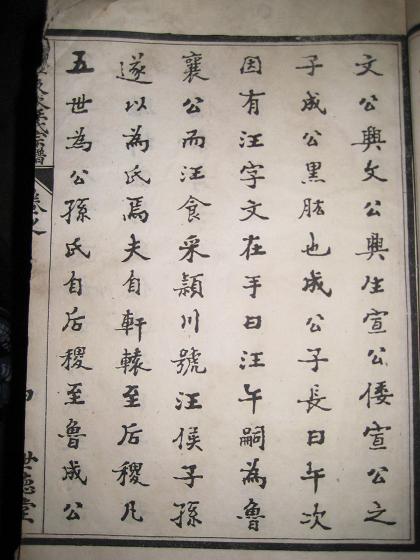 文公興文公興生宣公倭宣公之
子成公黑肱也成公子長曰午次
因有汪字文在手曰汪午嗣為魯
襄公而汪食采潁川號汪侯子孫
遂以為氏焉夫自軒轅至后稷凡
五世為公孫氏自后稷至魯成公
宗譜
卷之
世德堂